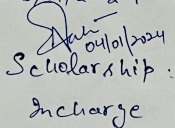 04/01/2024
Scholarship.
Incharge